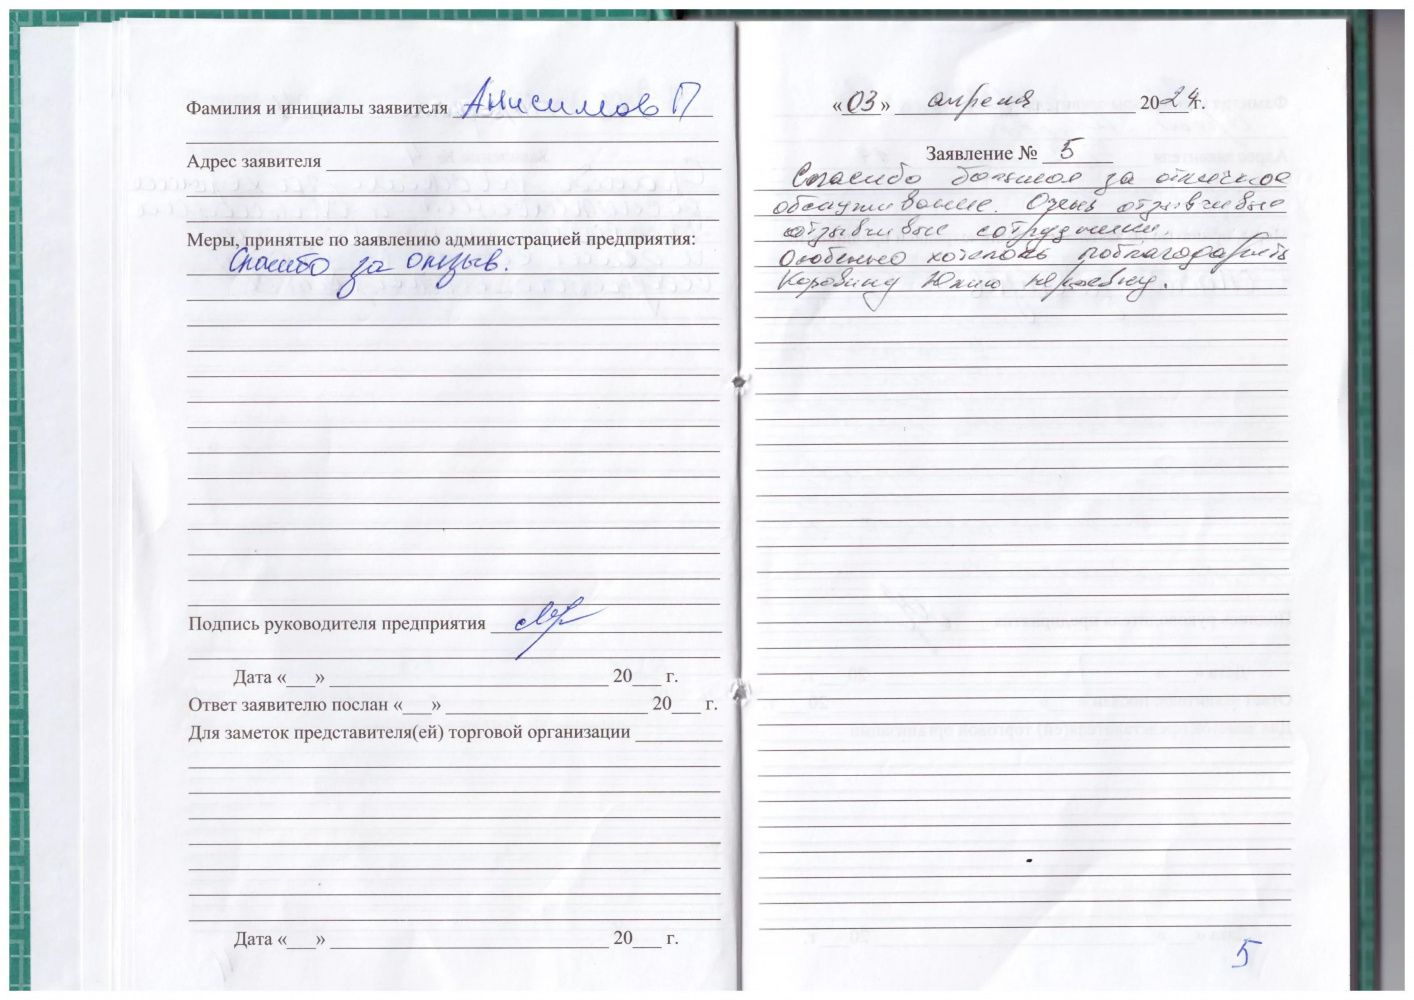 Фамилия и инициалы заявителя Анисимов П
Адрес заявителя
Меры, принятые по заявлению администрацией предприятия:
Спасибо за отзыв.
Подпись руководителя предприятия
Дата «___» ____ 20___ г.
Ответ заявителю послан «___» ____ 20___ г.
Для заметок представителя(ей) торговой организации
Дата «___» ____ 20___ г.
«03» апреля 2024г.
Заявление № 5
Спасибо большое за отличное
обслуживание. Очень отзывчивые
отзывчивые сотрудники.
Особенно хотелось поблагодарить
Юлию
5